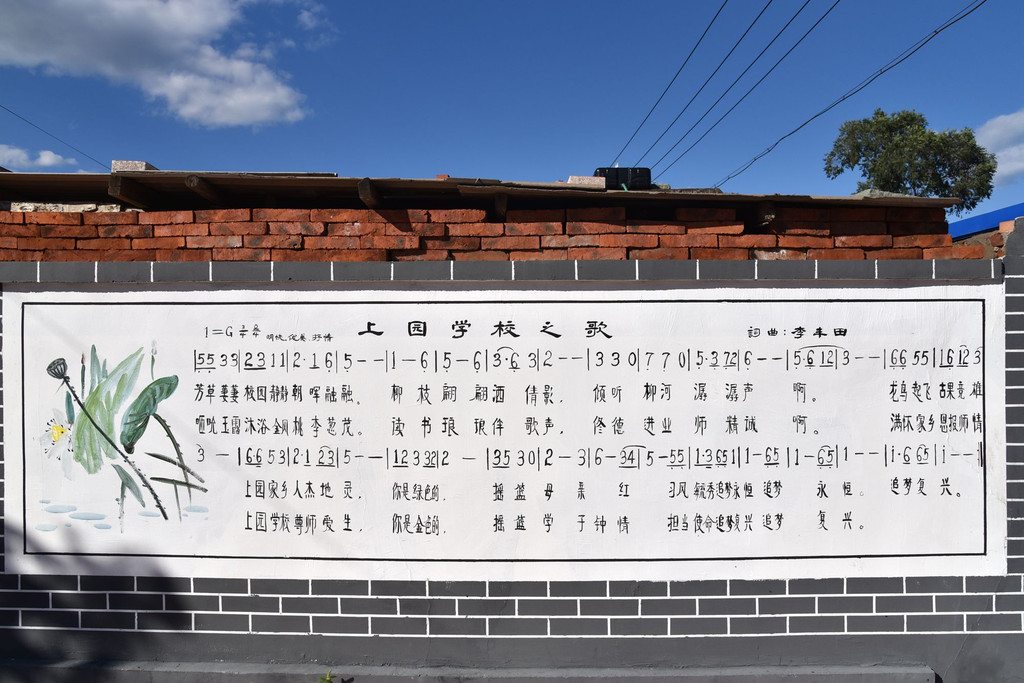 上园学校之歌
1=G 2/4 4/4 明快、优美、抒情 詞曲:李丰田
|55 33|23 11|2·1 6|5--|1-6|5-6|3·6 3|2--|3 3 0|7 7 0|5·3 72|6--|5·6 12|3--|66 55|16 12 3
芳草萋萋 校园静静 朝晖融融。 柳枝翩翩洒倩影, 倾听柳河潺潺声啊。 龙鸟起飞 古果竞雄
沐浴 桃李葱茏。 读书琅琅伴歌声, 修德进业师精诚啊。 满怀家乡恩报师情
3-|66 53|2·1 23|5--|12 3 32|2-|35 30|2-3|6-34|5-55|1·3 65 1|1-65|1-65|1--|i·6 65|i--:|
上园家乡人杰地灵, 你是绿色的, 摇篮母亲红 习风毓秀追梦永恒 追梦永恒。 追梦复兴。
上园学校尊师爱生, 你是金色的, 摇篮学子钟情 担当使命追梦复兴 追梦复兴。